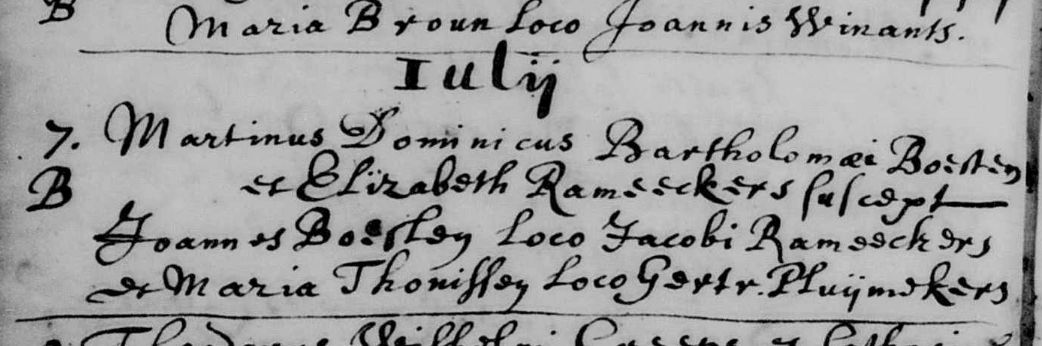 B
Maria Broun loco Joannis Winants.
Iulij
7. Martinus Dominicus Bartholomæi Boesten
B et Elizabeth Rameeckers suscept
Joannes Boesten loco Jacobi Rameeckers
et Maria Thonissen loco Gertr. Pluijmekers